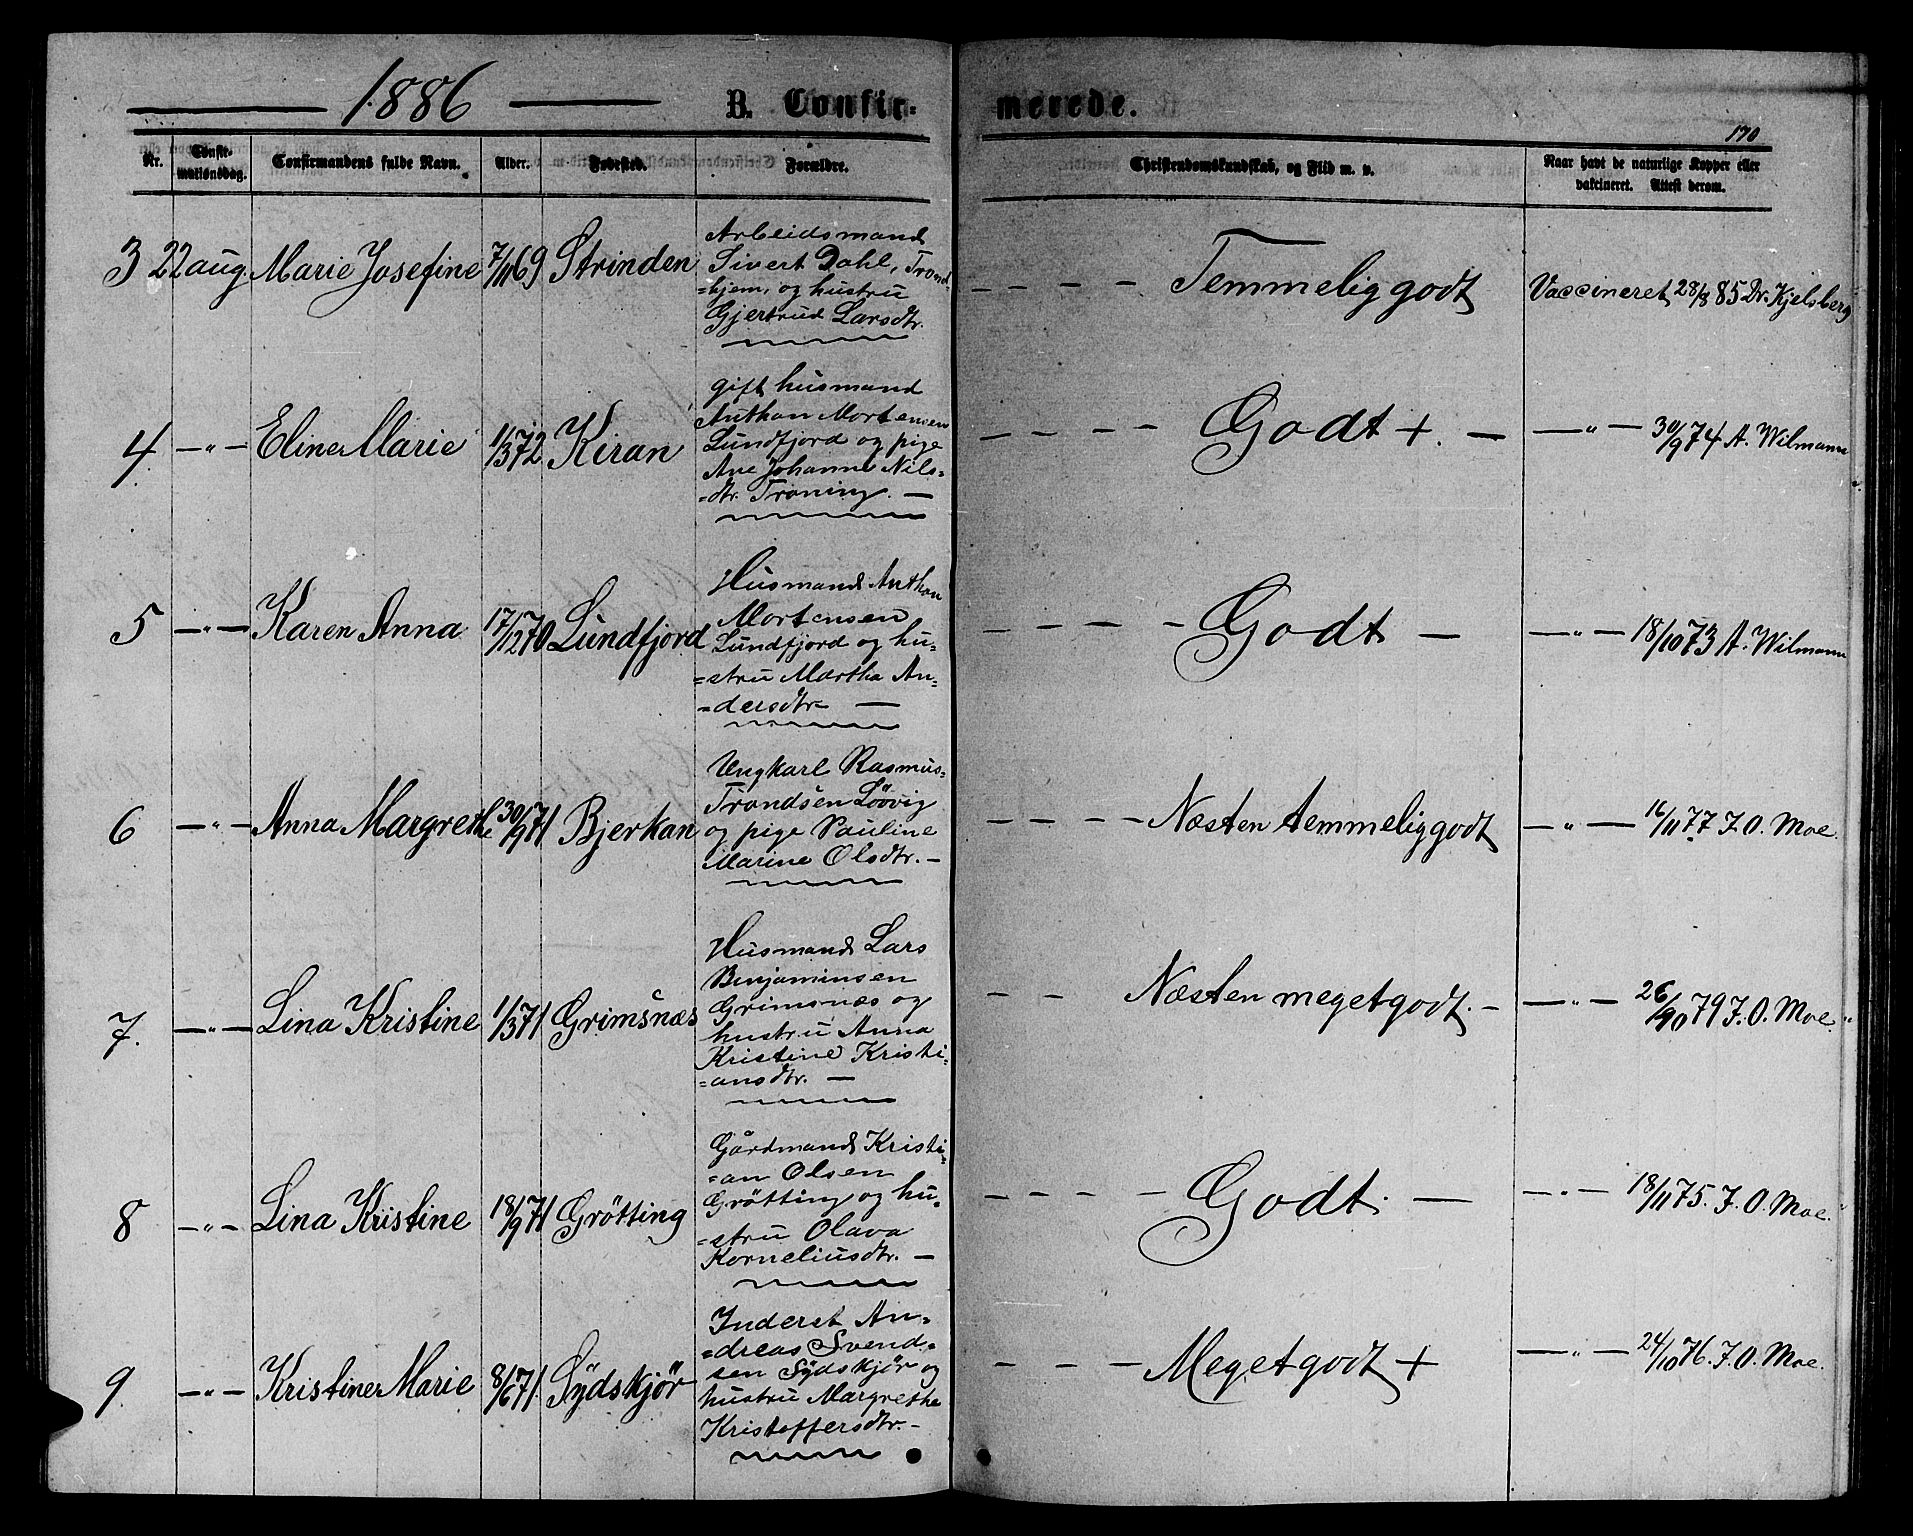 1886 B. Confirmerede.
170
Nr. Confirmationsdag. Confirmandens fulde Navn. Alder. Fødested. Forældre. Christendomskundskab, og Flid m. v. Naar havt de naturlige Kopper eller vakcineret. Attest derom.
3 22 aug. Marie Josefine 7/11 69 Strinden
Arbeidsmand
Sivert Dahl, Trond-
=hjem, og hustru
Gjertrud Larsdtr.
- - - - Temmelig godt Vaccineret 28/8 85 Dr. Kjelsberg
4. —"— Eline Marie 1/3 72 Kiran
gift husmand
Anthon Mortensen
Lundfjord og pige
Ane Johanna Nils=
=dtr. Troning. —
- - - - Godt +. — —"— 30/9 74 A. Wilmann
5 —"— Karen Anna 17/12 70 Lundfjord
Husmand Anthon
Mortensen
Lundfjord og hu=
=stru Martha An=
=dersdtr —
- - - - Godt — —"— 18/10 73 A. Wilmann
6 —"— Anna Margrethe 30/9 71 Bjerkan
Ungkarl Rasmus
Trondsen Löövig
og pige Pauline
Marine Olsdtr. —
- - - - Næsten temmelig godt —"— 16/11 77 J. O. Moe.
7. —"— Lina Kristine 1/3 71 Grimsnæs
Husmand Lars
Benjaminsen
Grimsnæs og
hustru Anna
Kristine Kristi=
=ansdtr. —
- - Næsten meget godt. - —"— 26/10 79 J. O. Moe.
8 —"— Lina Kristine 18/9 71 Grötting
Gårdmand Kristi=
=an Olsen
Grötting og hu=
=stru Olava
Korneliusdtr. —
- - - - Godt. — —"— 18/11 75. J. O. Moe.
9. —"— Kristine Marie 8/6 71. Sydskjör
Inderst An=
=dreas Svend=
sen Sydskjör og
hustru Margrethe
Kristoffersdtr. —
- - - Meget godt + —"— 24/10 76. J. O. Moe.